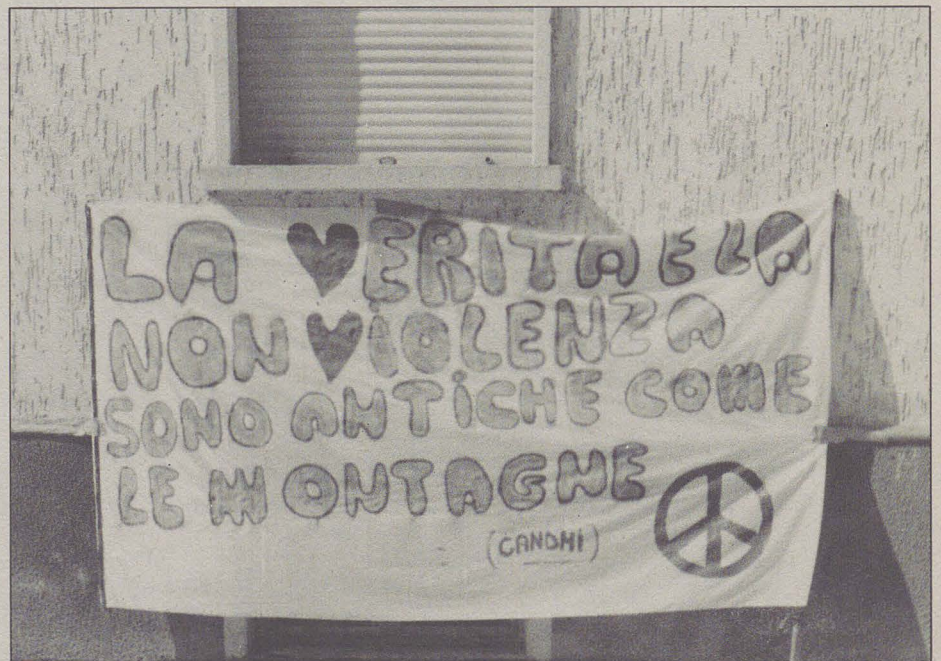 LA VERITA E LA
NON VIOLENZA
SONO ANTICHE COME
LE MONTAGNE
(GANDHI)